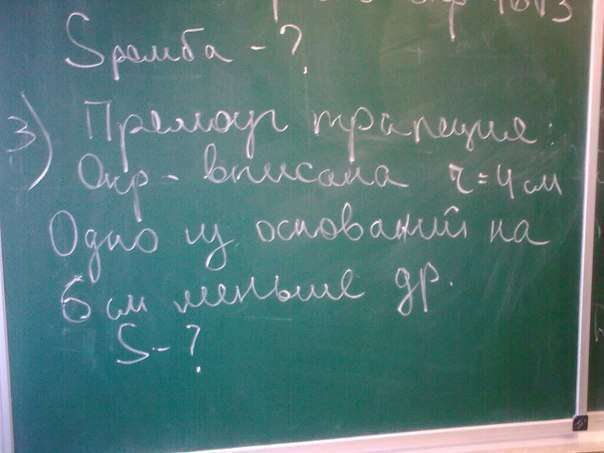 Sромба - ?
3) Прямоуг трапеция:
Окр - вписана r = 4 см
Одно из оснований на
6 см меньше др.
S - ?